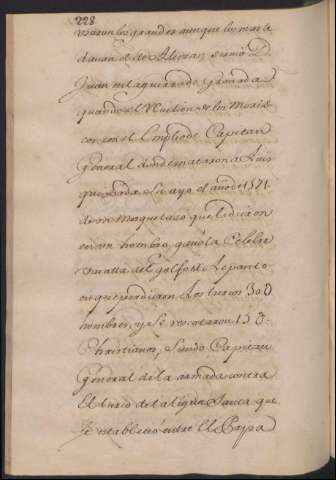 228
usaron los grandes aunque los mas le
davan el de Alteza; sirvio D.
Juan en la guerra de Granada
quando el
con con el Empleo de Capitan
General donde mataron a Luis
quejada su ayo el año de 1571.
de un Mosquetazo que le dieron
en un hombro, ganó la Celebre
vatalla del golfo de Lepanto
en que perdieron los turcos 30 D
hombres, y se rescataron 15 D
Christianos, siendo Capitan
General de la armada contra
El turco de la liga Santa que
se establecio entre El Papa